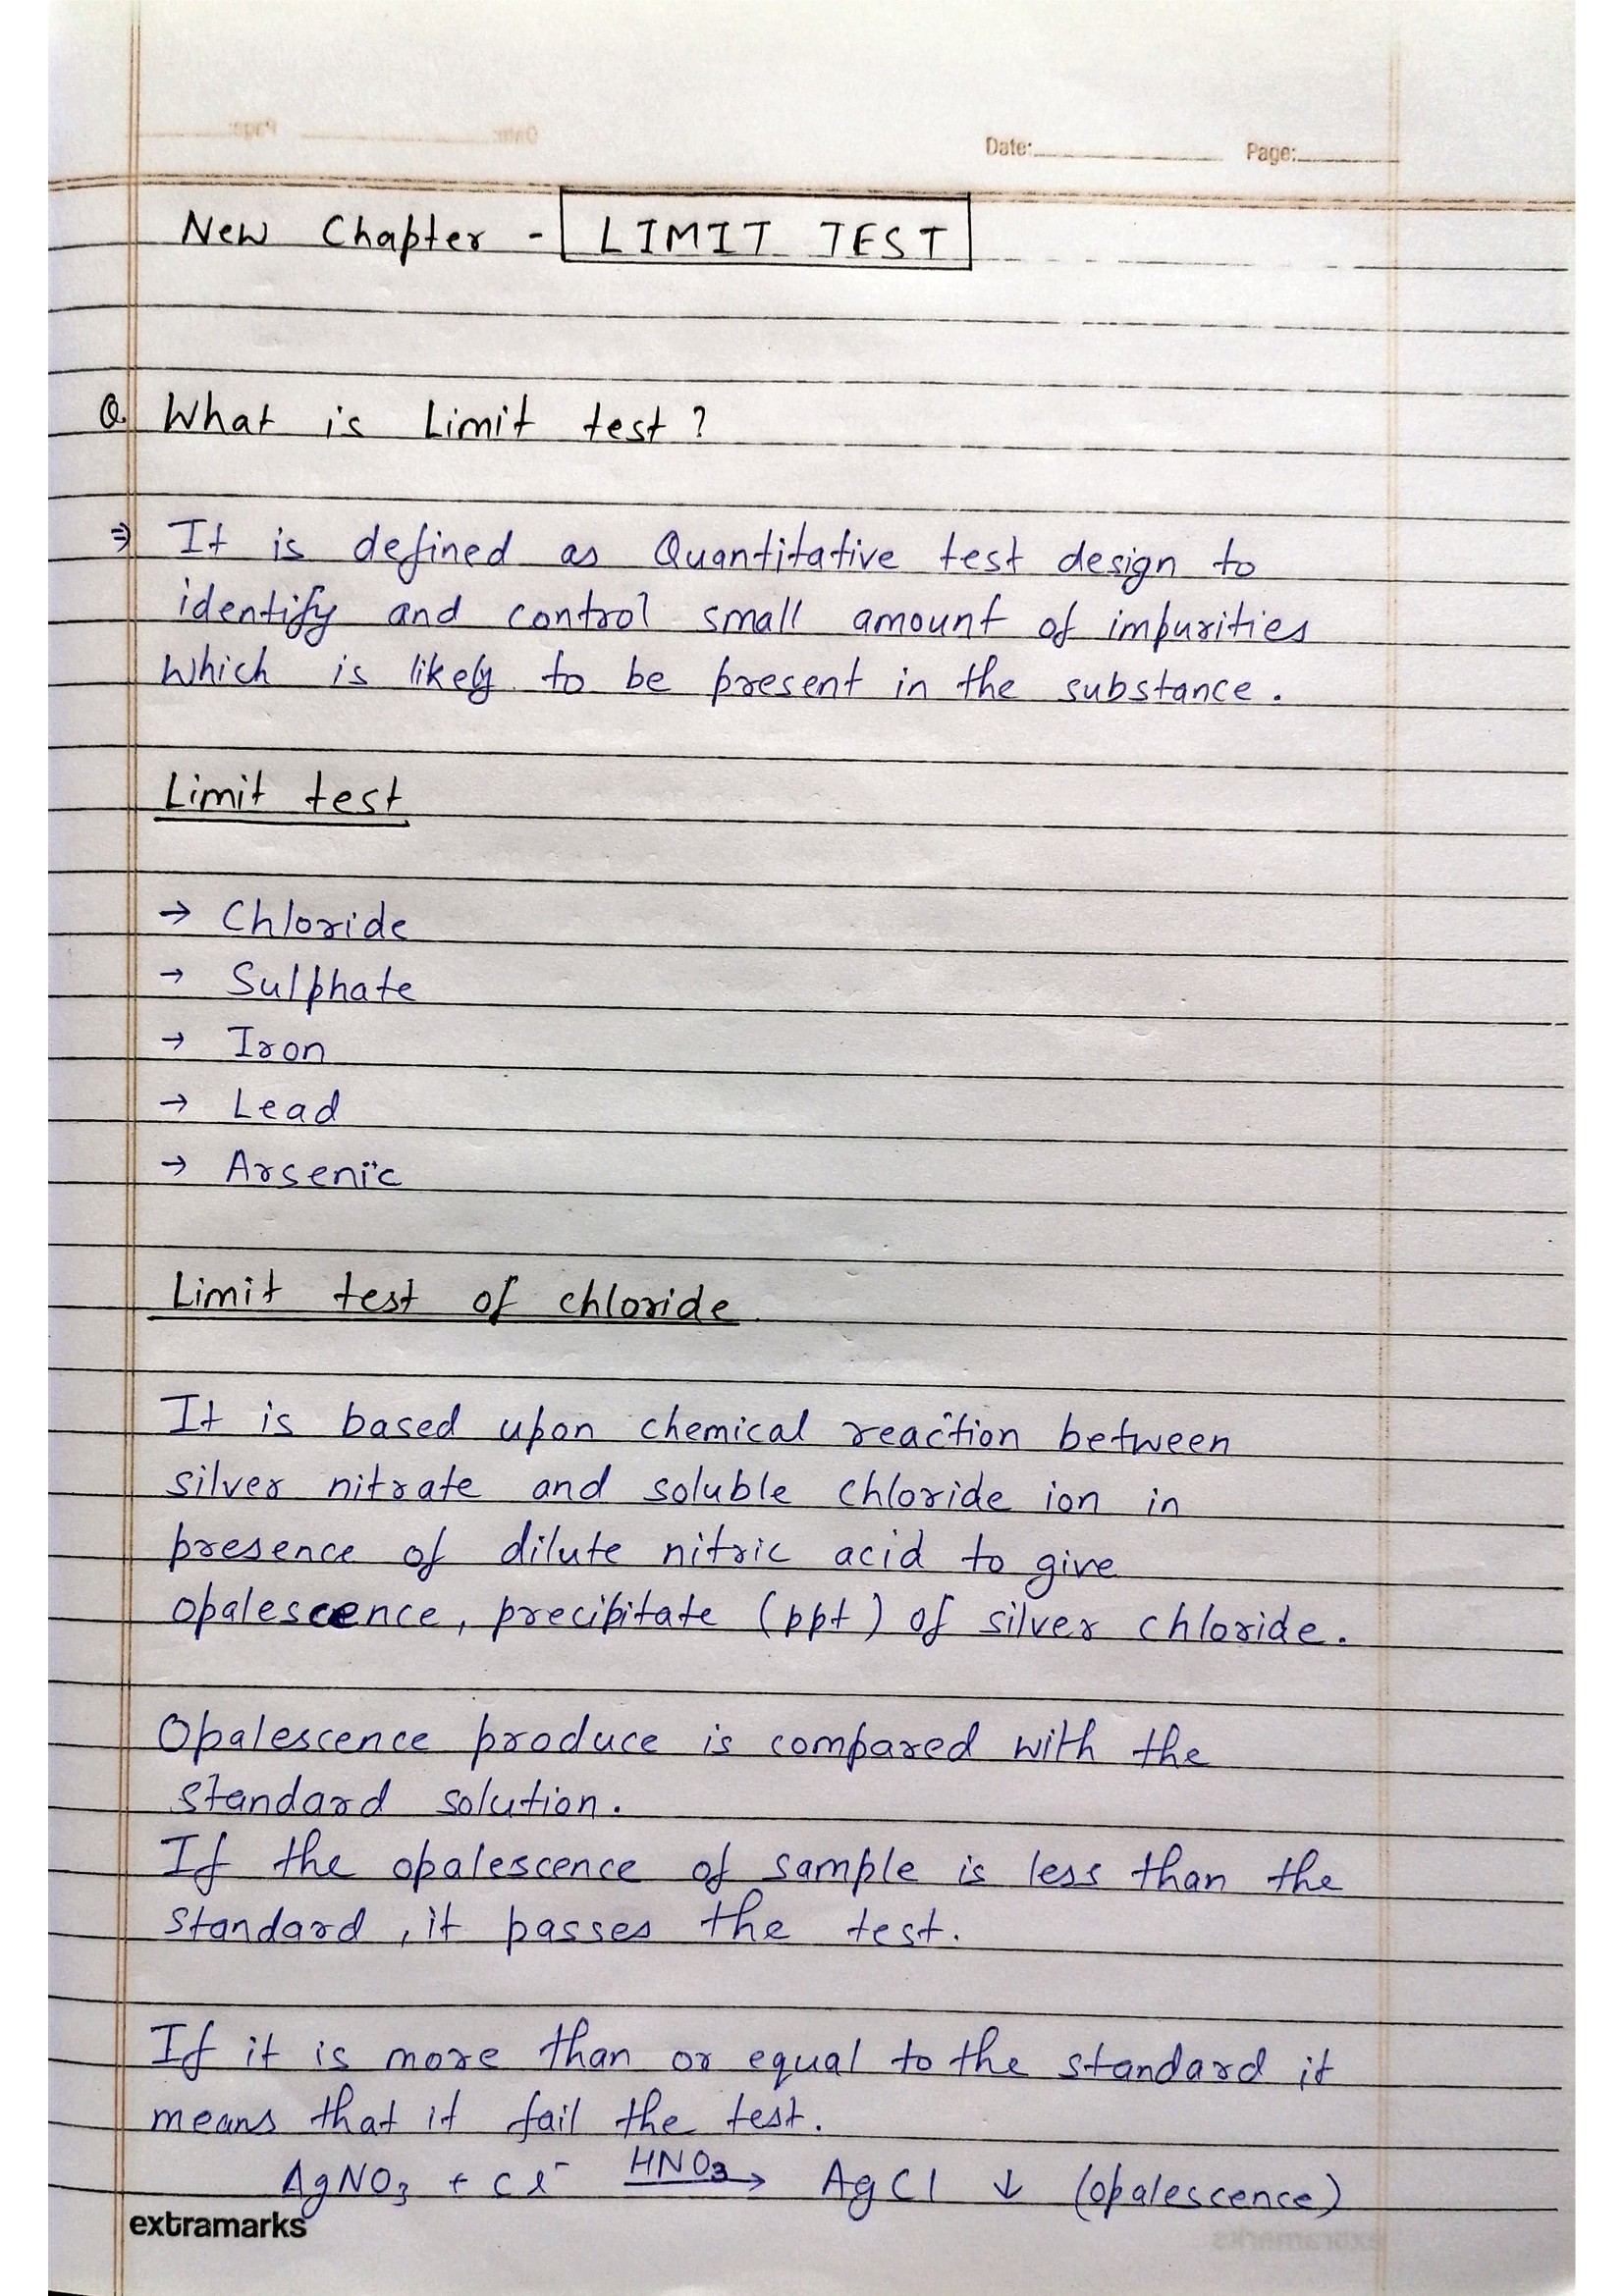 Date: Page:
New Chapter - LIMIT TEST
Q. What is Limit test ?
⇒ It is defined as Quantitative test design to
identify and control small amount of impurities
which is likely to be present in the substance.
Limit test
→ Chloride
→ Sulphate
→ Iron
→ Lead
→ Arsenic
Limit test of chloride
It is based upon chemical reaction between
silver nitrate and soluble chloride ion in
presence of dilute nitric acid to give
opalescence, precipitate (ppt) of silver chloride.
Opalescence produce is compared with the
standard solution.
If the opalescence of sample is less than the
standard, it passes the test.
If it is more than or equal to the standard it
means that it fail the test.
AgNO₃ + Cl⁻ HNO₃→ AgCl ↓ (opalescence)
extramarks